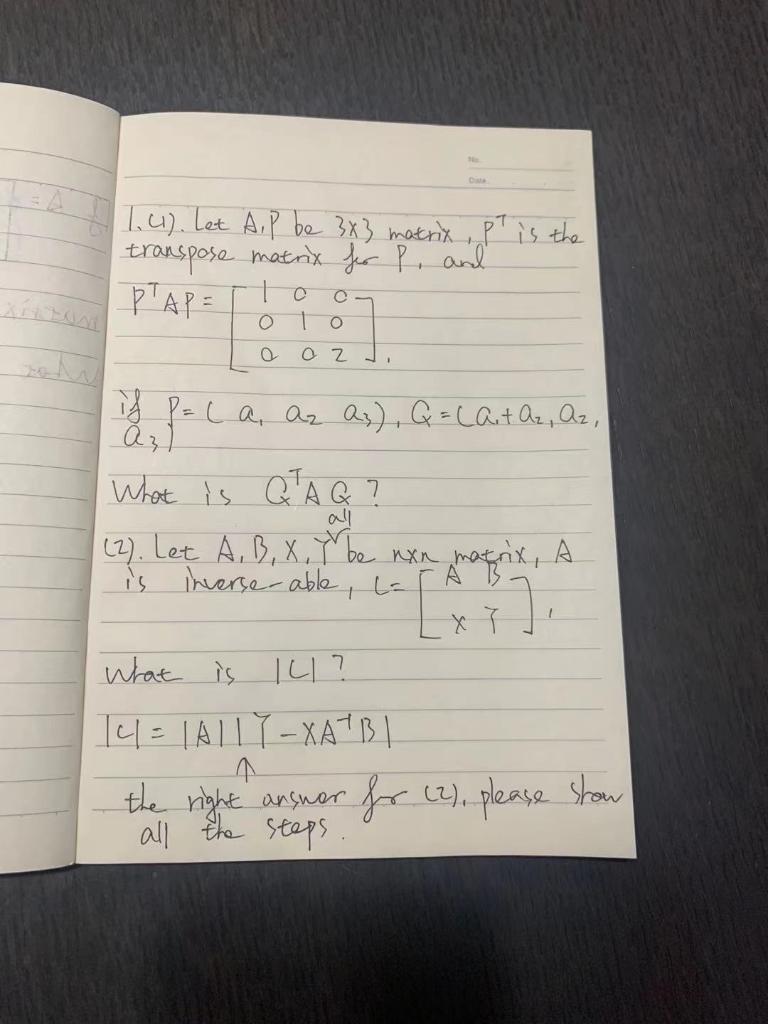 No.
Date.
1.(1). Let A,P be 3x3 matrix, Pᵀ is the
transpose matrix for P, and
PᵀAP = [ 1 0 0
0 1 0
0 0 2 ].
if P = ( a₁ a₂ a₃), Q = (a₁+a₂, a₂,
a₃)
What is QᵀAQ ?
all
(2). Let A, B, X, Y be nxn matrix, A
is inverse-able, C = [ A B
X Y ],
What is |C| ?
|C| = |A||Y - XA⁻¹B|
↑
the right answer for (2), please show
all the steps.